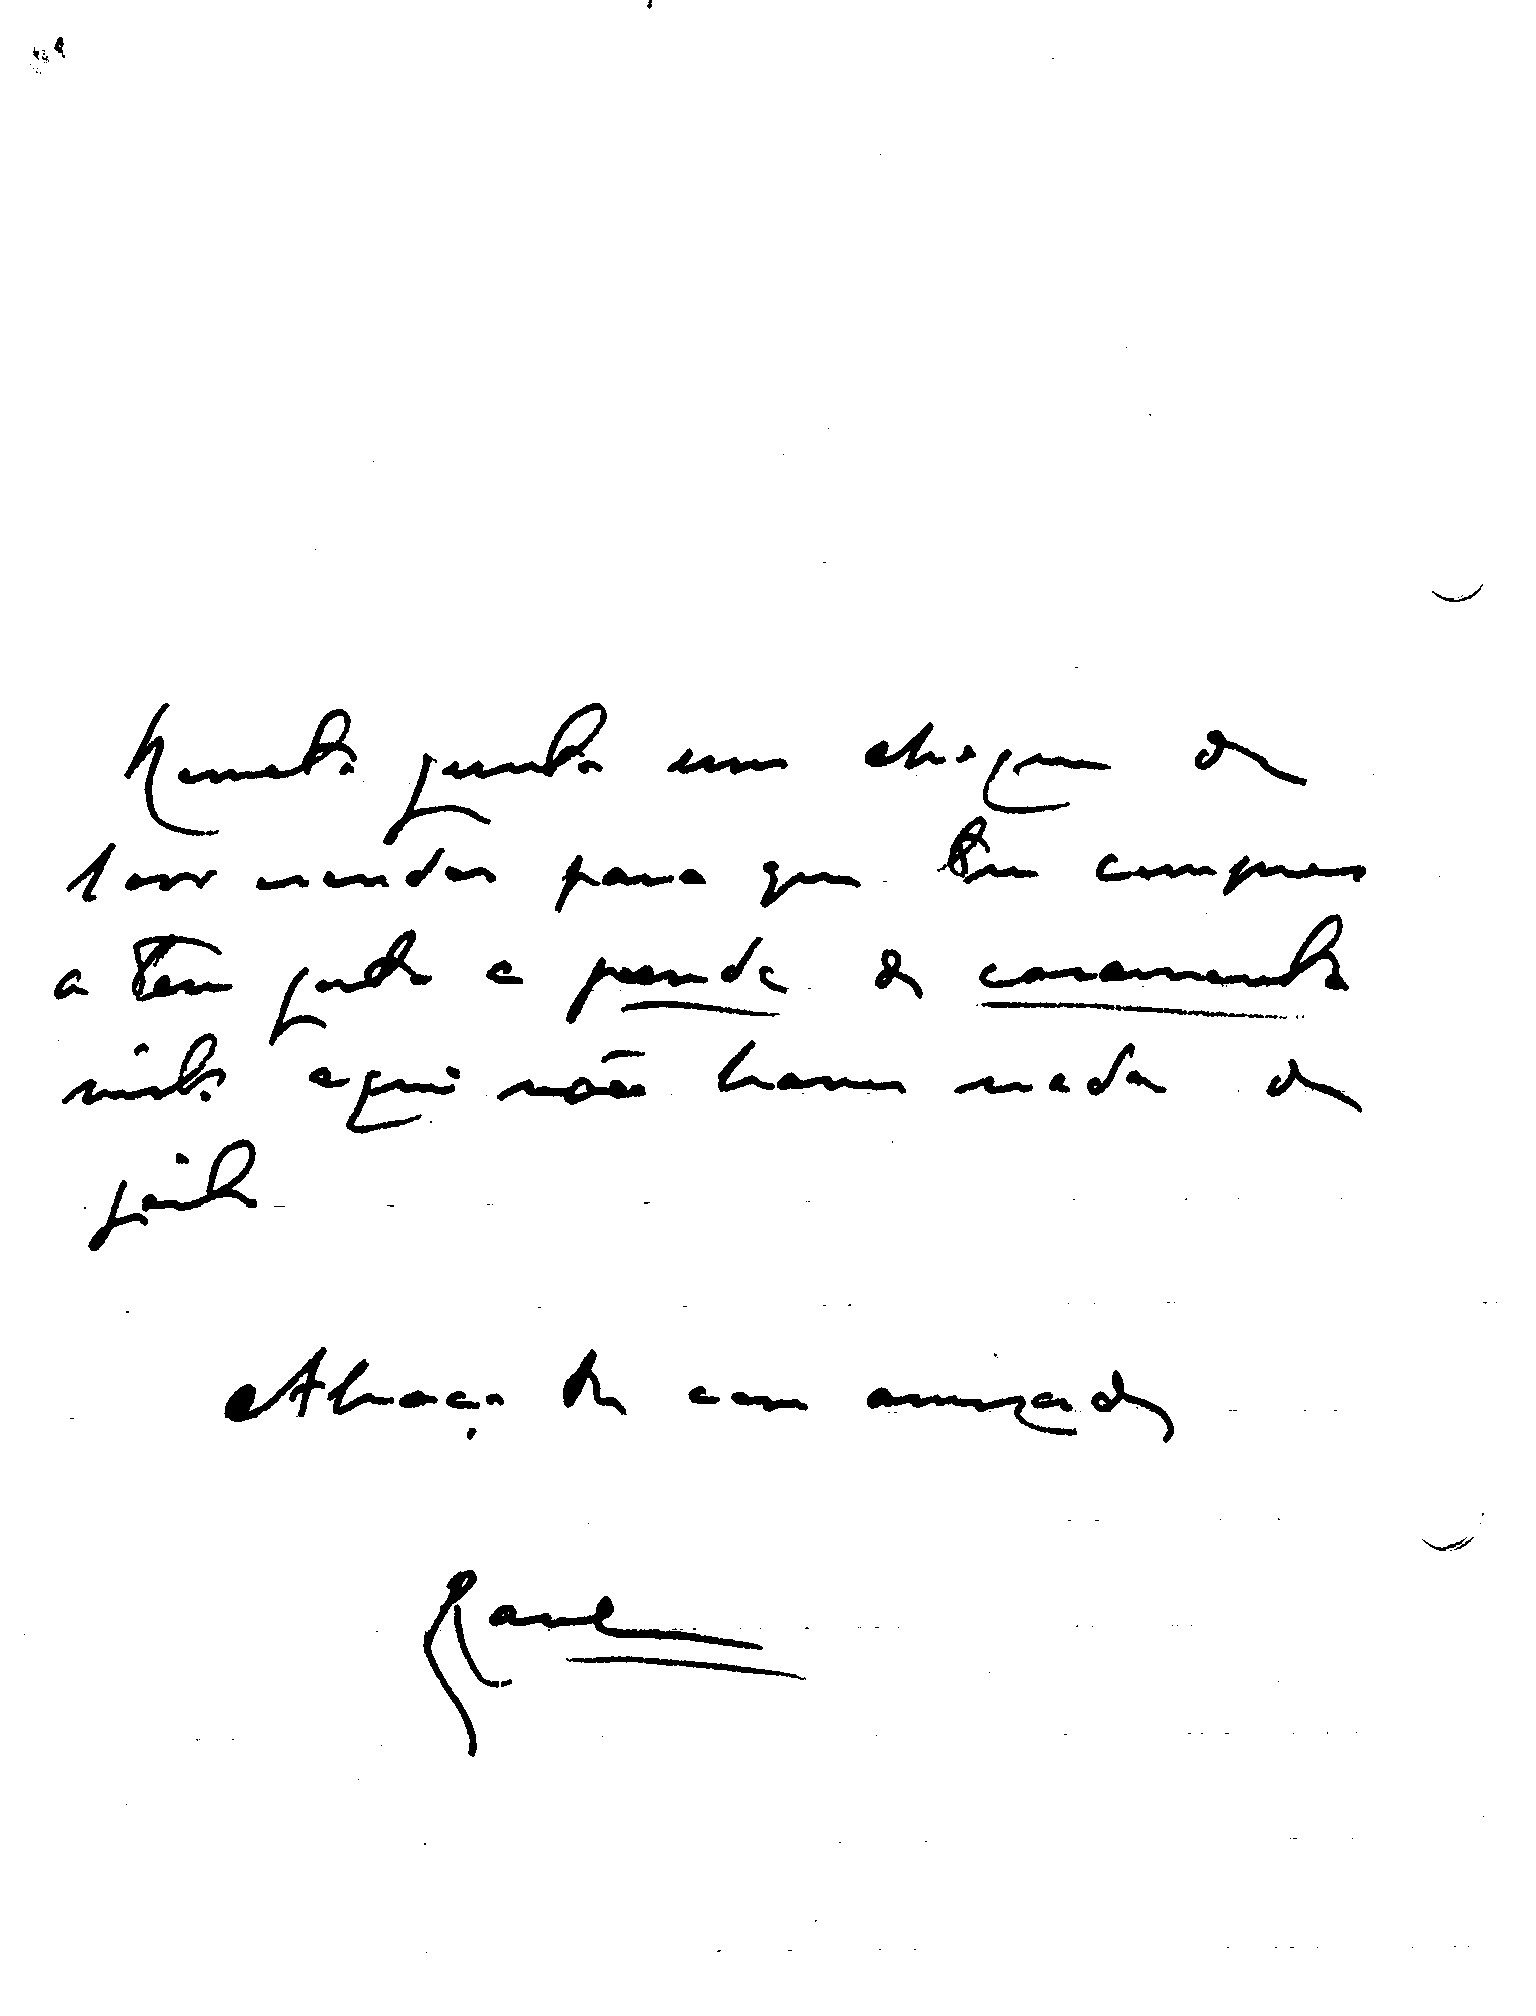 Remeto junto um cheque de
1000 escudos para que tu compres
a teu gosto a prenda de casamento
visto aqui não haver nada de
jeito
Abraço-te com amizade
Raul